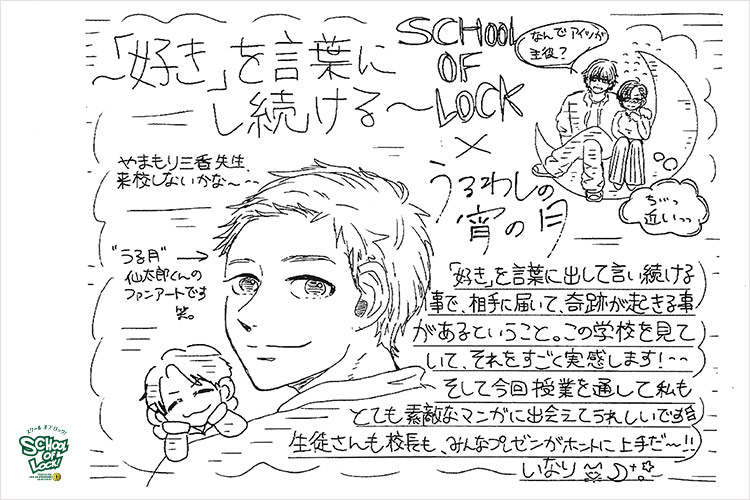 ～「好き」を言葉に
し続ける～
SCHOOL
OF
LOCK
×
うるわしの
宵の月
なんでアイツが
主役？
ぢぃっ
近いっっ
やまもり三香先生、
来校しないかな～～
"うる月"→
仙太郎くんの
ファンアートです
笑。
「好き」を言葉に出して言い続ける
事で、相手に届いて、奇跡が起きる事
があるということ。この学校を見て
いて、それをすごく実感します！～～
そして今回授業を通して私も
とても素敵なマンガに出会えてうれしいです
生徒さんも校長も、みんなプレゼンがホントに上手だ～!!
いなり
スクールオブロック!
SCHOOL
OF
LOCK!